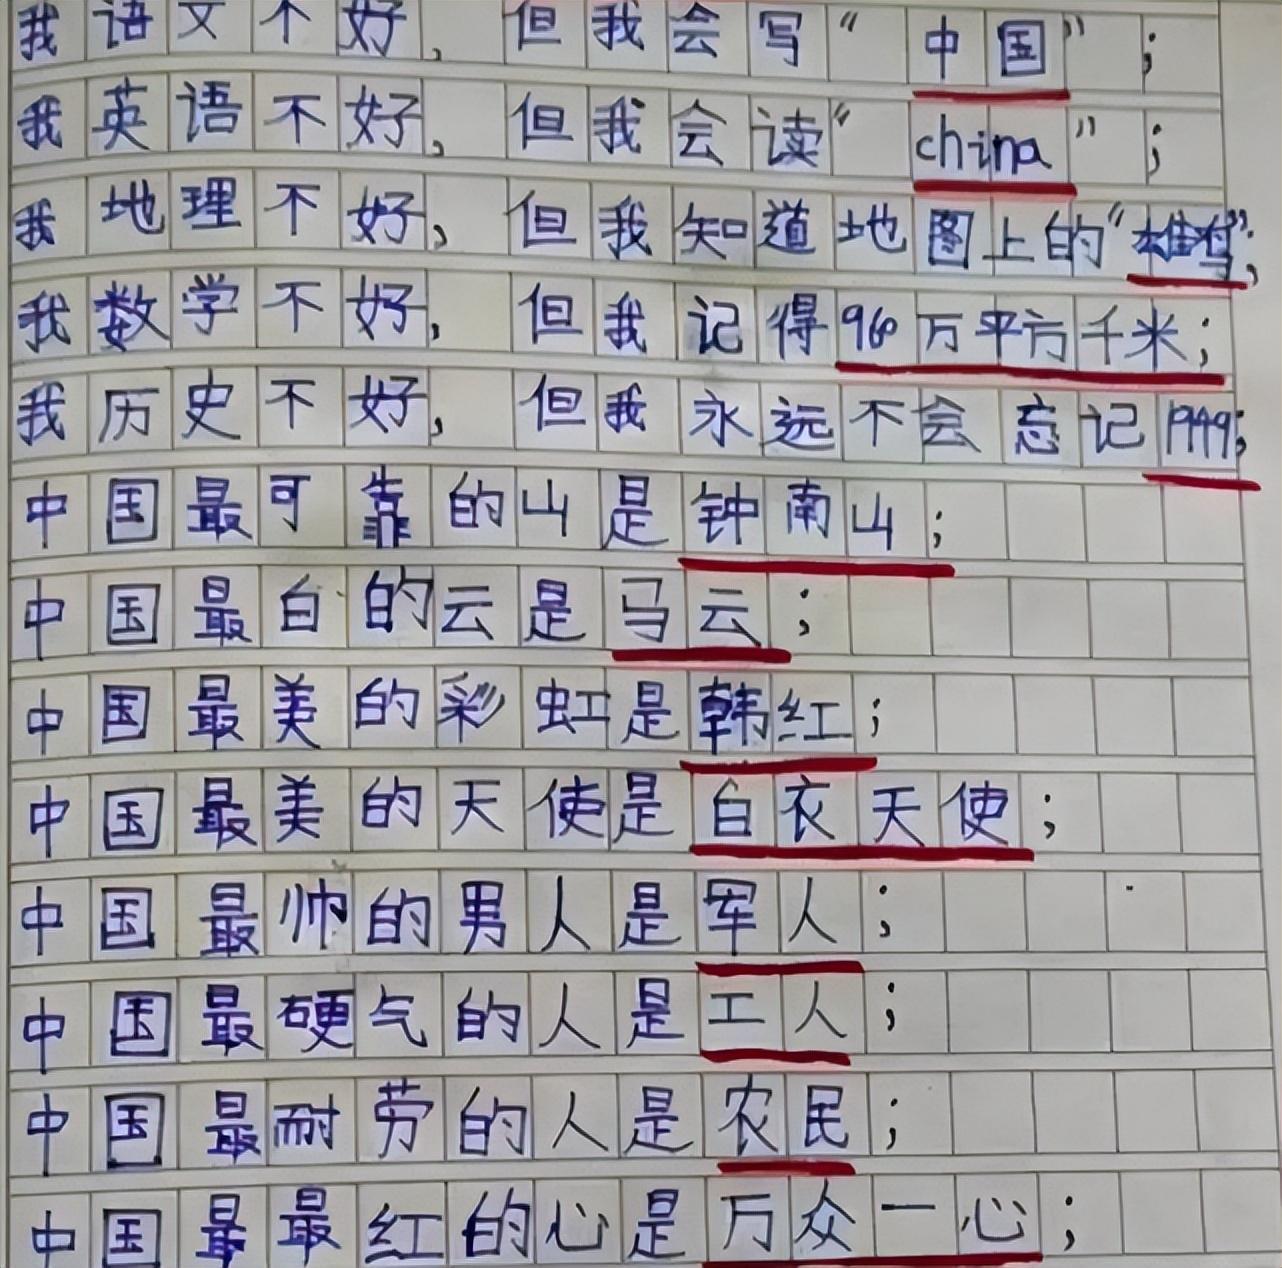 我语文不好，但我会写“中国”；
我英语不好，但我会读“china”；
我地理不好，但我知道地图上的“雄鸡”；
我数学不好，但我记得960万平方千米；
我历史不好，但我永远不会忘记1949；
中国最可靠的山是钟南山；
中国最白的云是马云；
中国最美的彩虹是韩红；
中国最美的天使是白衣天使；
中国最帅的男人是军人；
中国最硬气的人是工人；
中国最耐劳的人是农民；
中国最最红的心是万众一心；